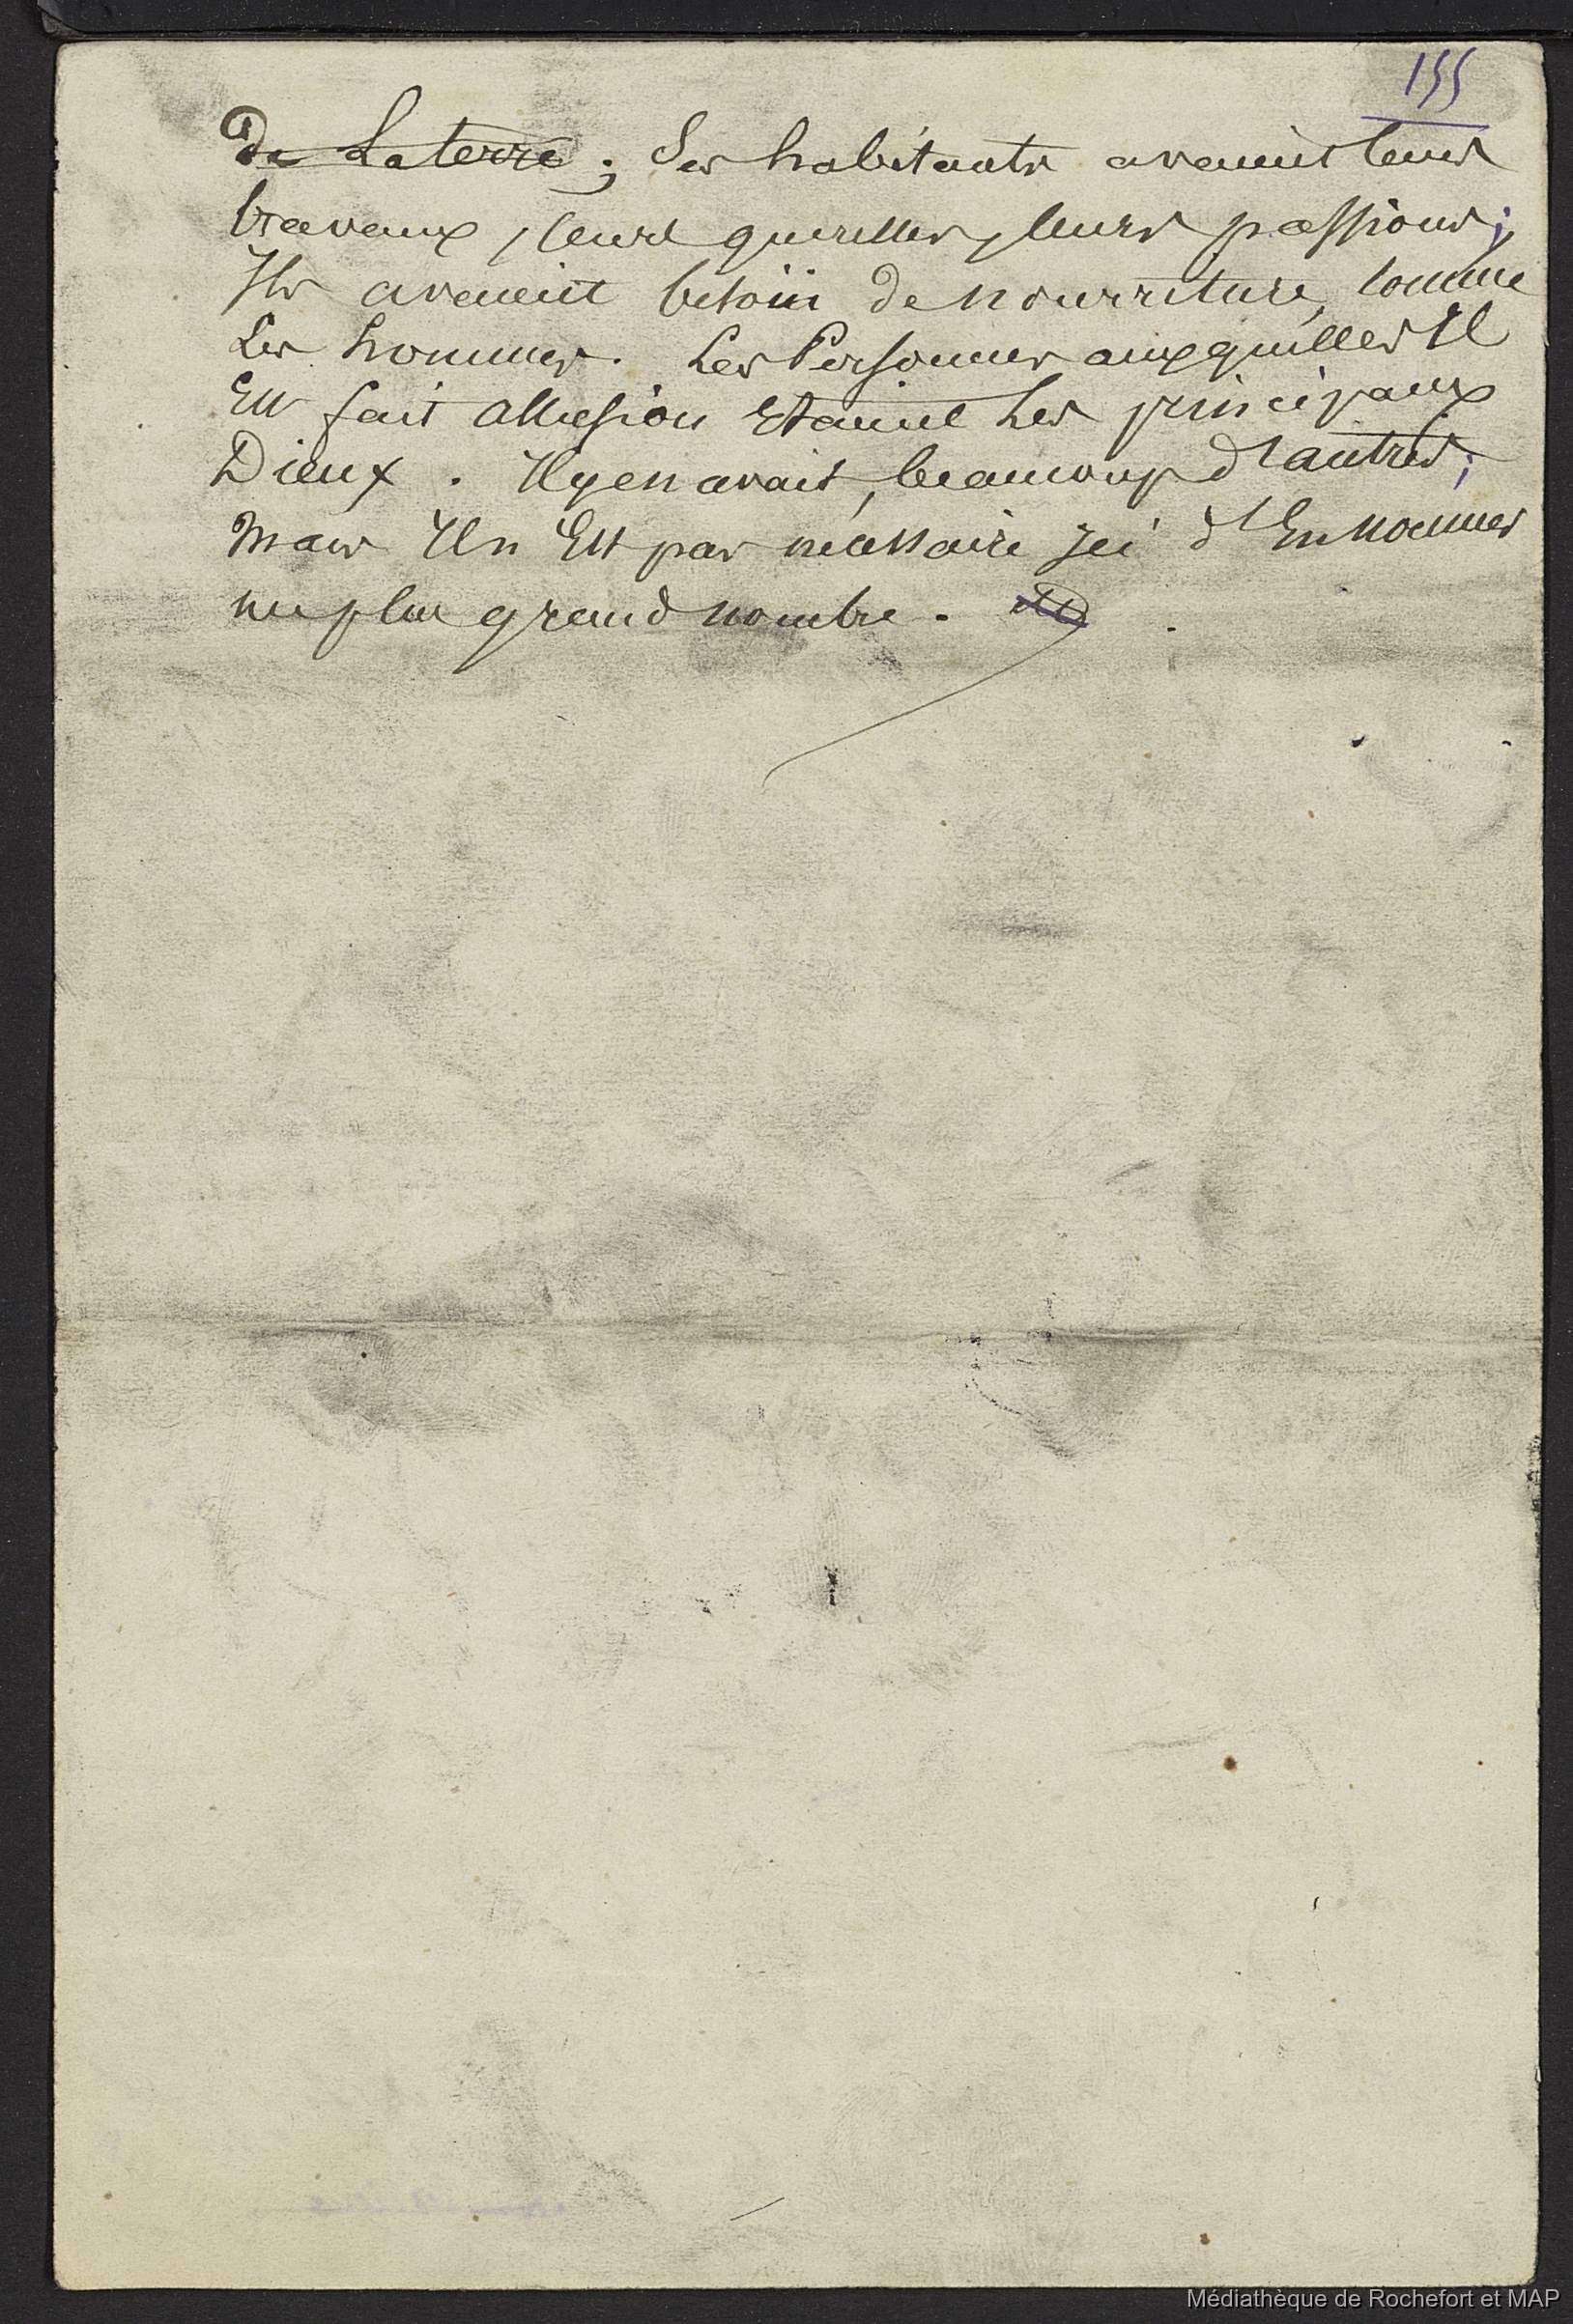 155
de La terre ; Ses habitants avaient leurs
travaux, leurs querelles, leurs passions ;
Ils avaient besoin de nourriture, comme
Les hommes. Les Personnes auxquelles Il
Est fait allusion Etaient Les principaux
Dieux. Il y en avait, beaucoup d'autres ;
Mais Il n'Est pas nécessaire ici d'En nommer
un plus grand nombre.
Médiathèque de Rochefort et MAP